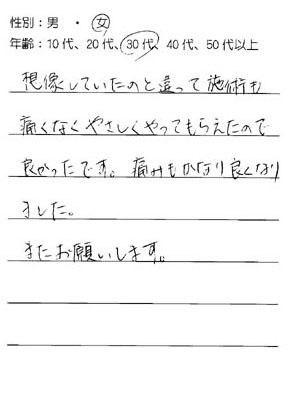 性別：男 ・ 女
年齢：10代、20代、30代、40代、50代以上
想像していたのと違って施術も
痛くなくやさしくやってもらえたので
良かったです。痛みもかなり良くなり
ました。
またお願いします。